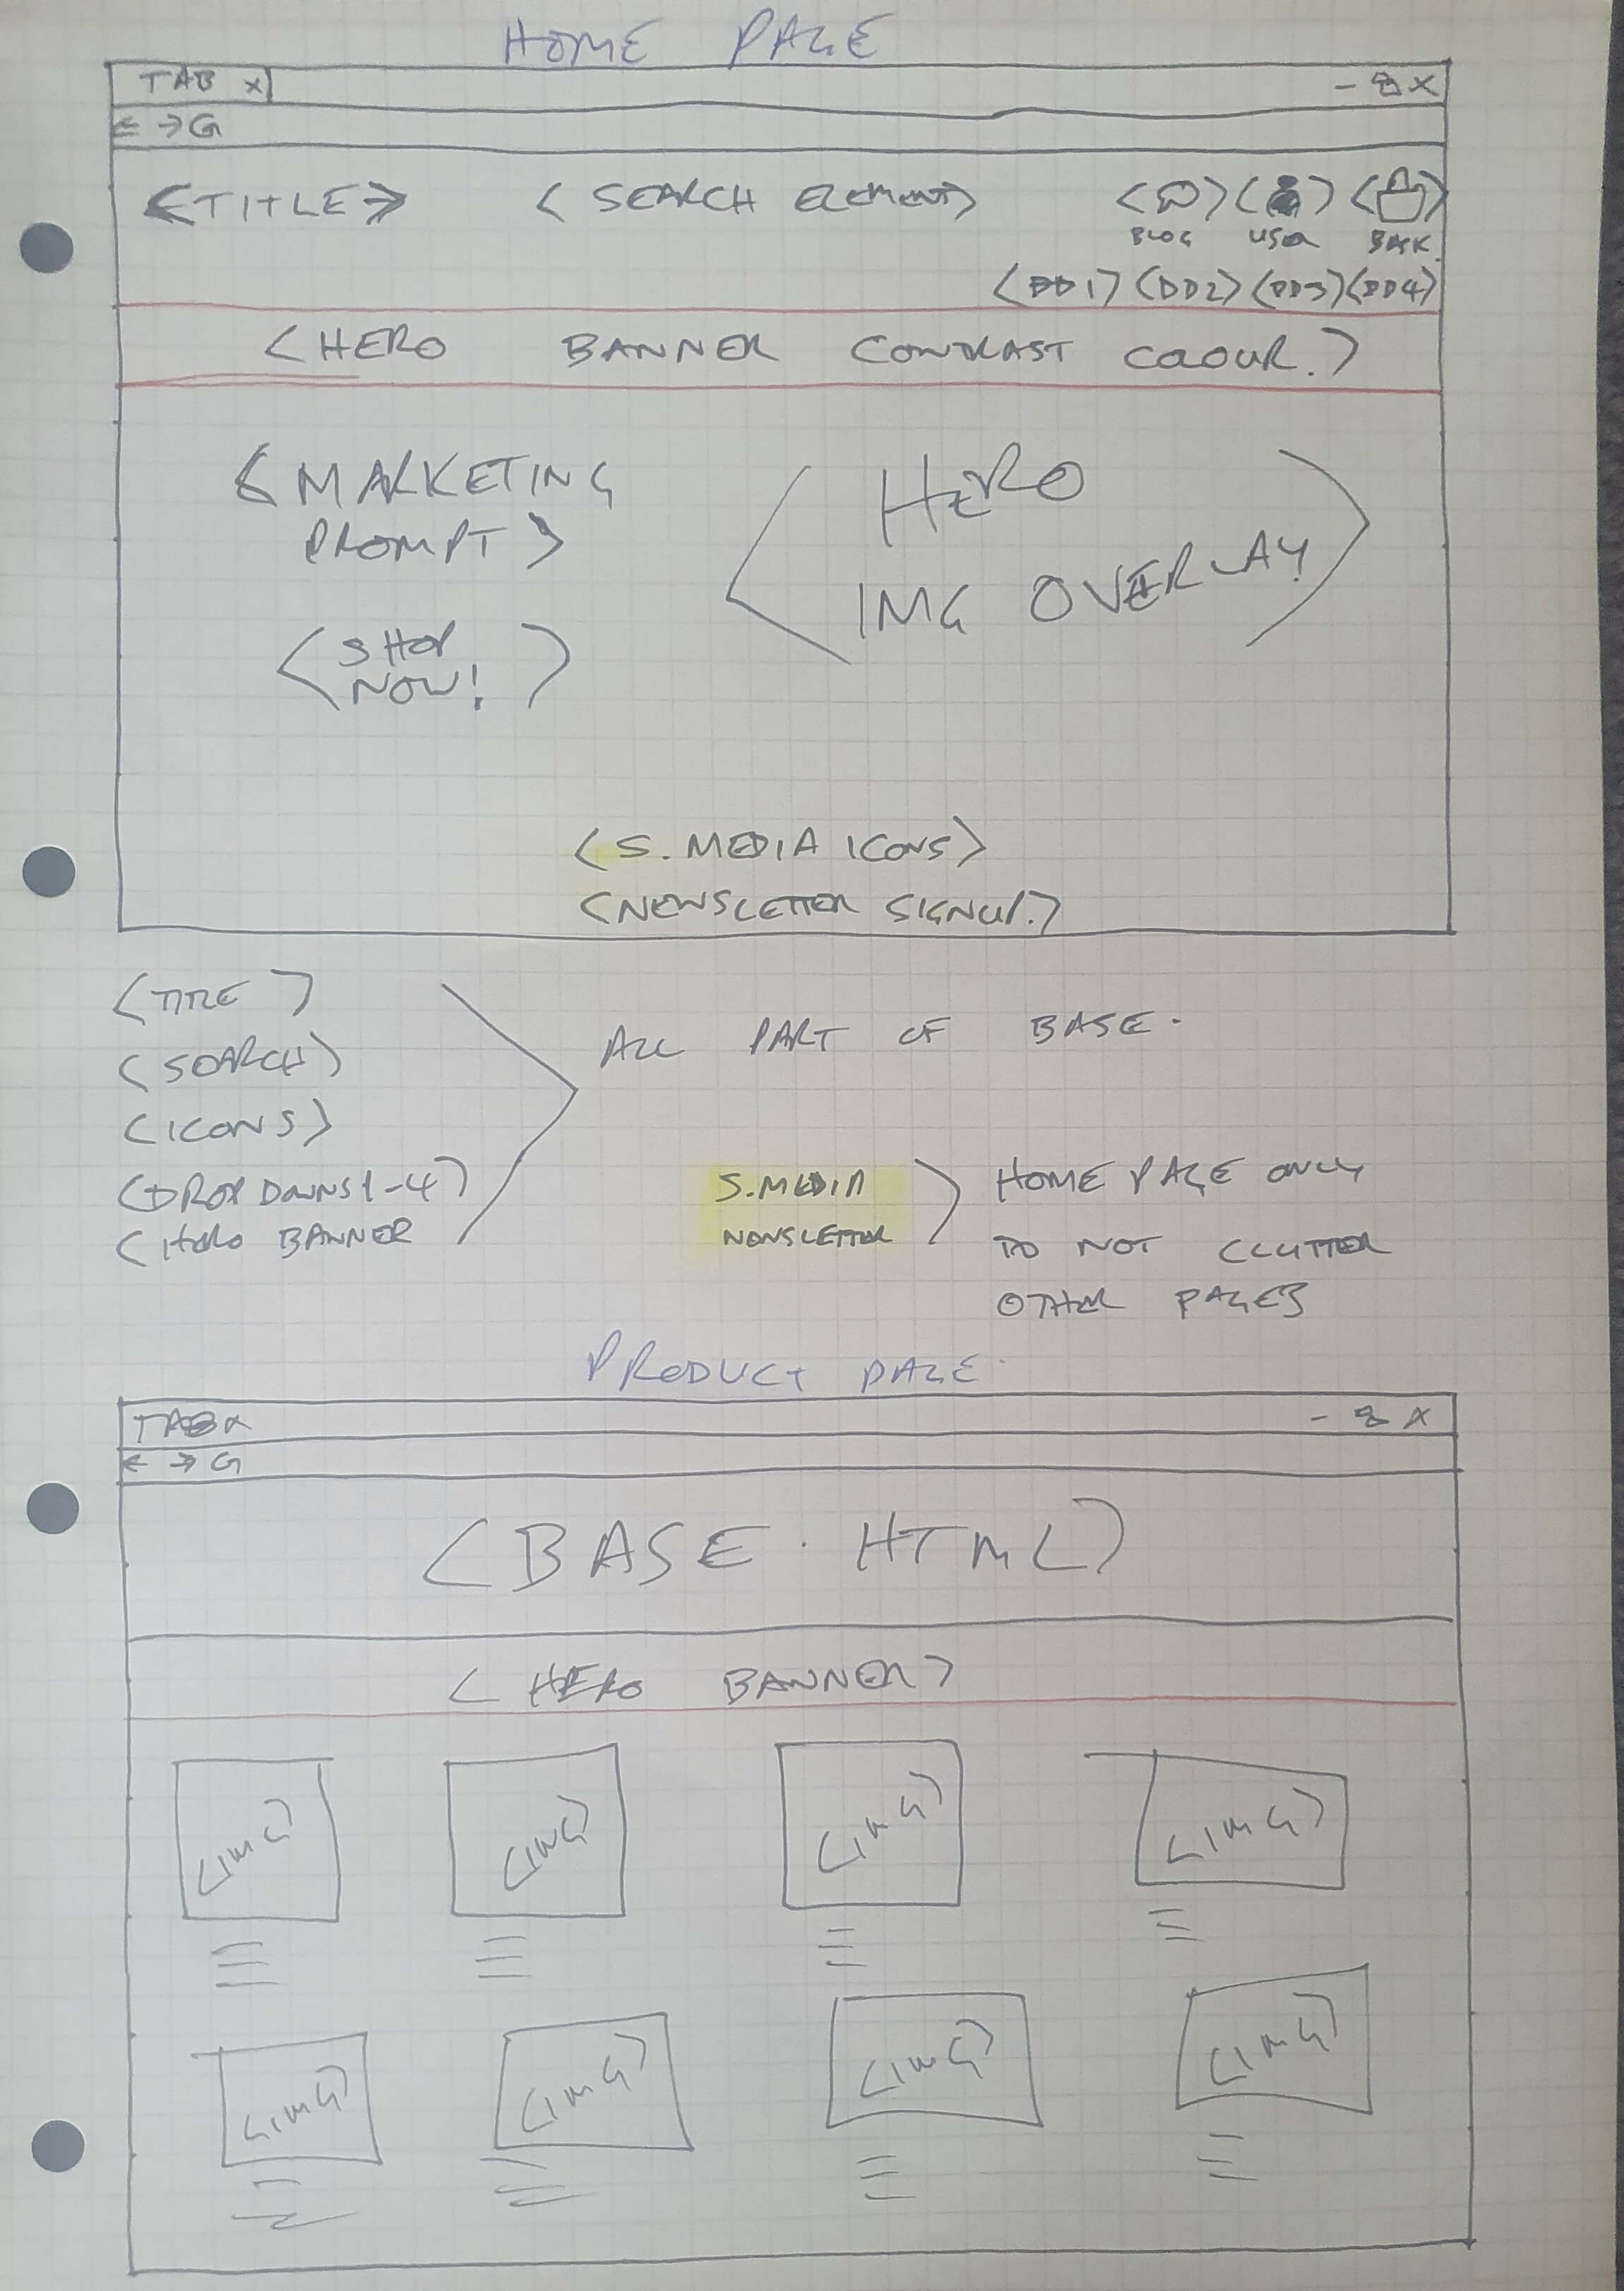 HOME PAGE
TAB x - x
← → G
<TITLE> < SEARCH ELEMENT> < > < > < >
BLOG USER BASK.
<DD1> <DD2> <DD3> <DD4>
<HERO BANNER CONTRAST COLOUR.>
<MARKETING
PROMPT>
< HERO
IMG OVERLAY >
<SHOP
NOW! >
<S. MEDIA ICONS>
<NEWSLETTER SIGNUP.>
<TITLE >
<SEARCH>
<ICONS>
<DROP DOWNS 1-4>
<HERO BANNER
> ALL PART OF BASE.
S.MEDIA
NEWSLETTER
> HOME PAGE ONLY
TO NOT CLUTTER
OTHER PAGES
PRODUCT PAGE.
TAB x - x
← → G
<BASE.HTML>
< HERO BANNER>
<IMG> <IMG> <IMG> <IMG>
<IMG> <IMG> <IMG> <IMG>